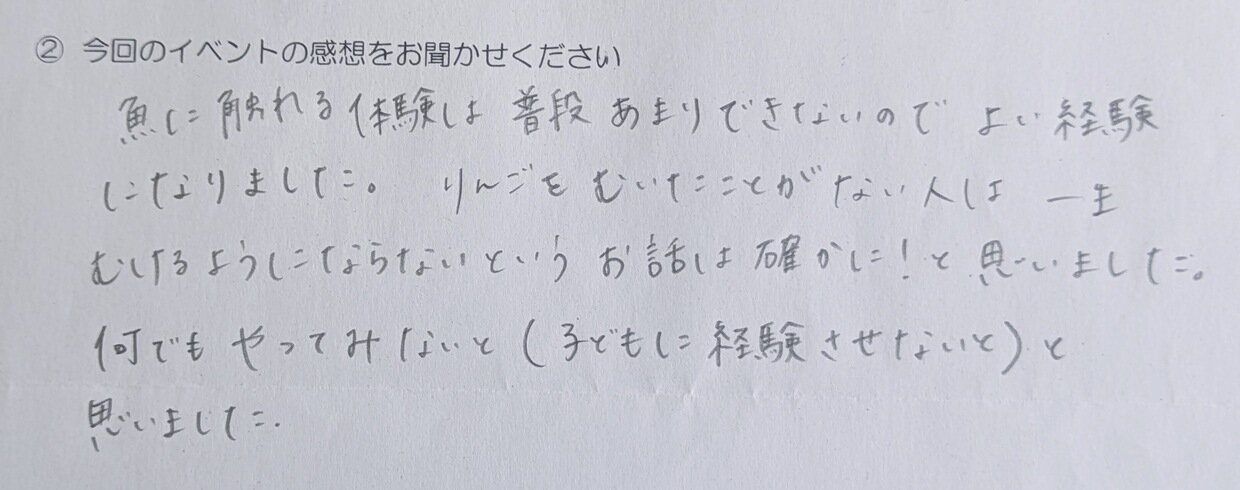 ② 今回のイベントの感想をお聞かせください
魚に触れる体験は普段あまりできないので よい経験
になりました。 りんごを むいたことがない人は 一生
むけるようにならないという お話は確かに!と思いました。
何でもやってみないと(子どもに経験させないと)と
思いました.